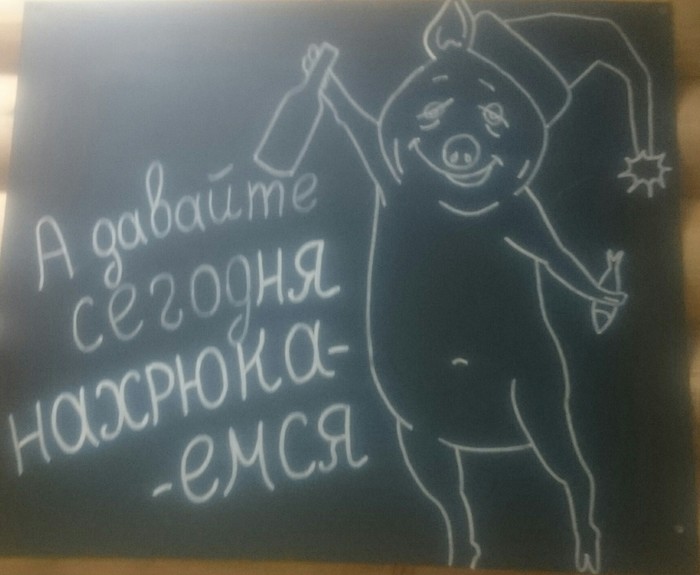 А давайте
сегодня
нахрюка-
-емся